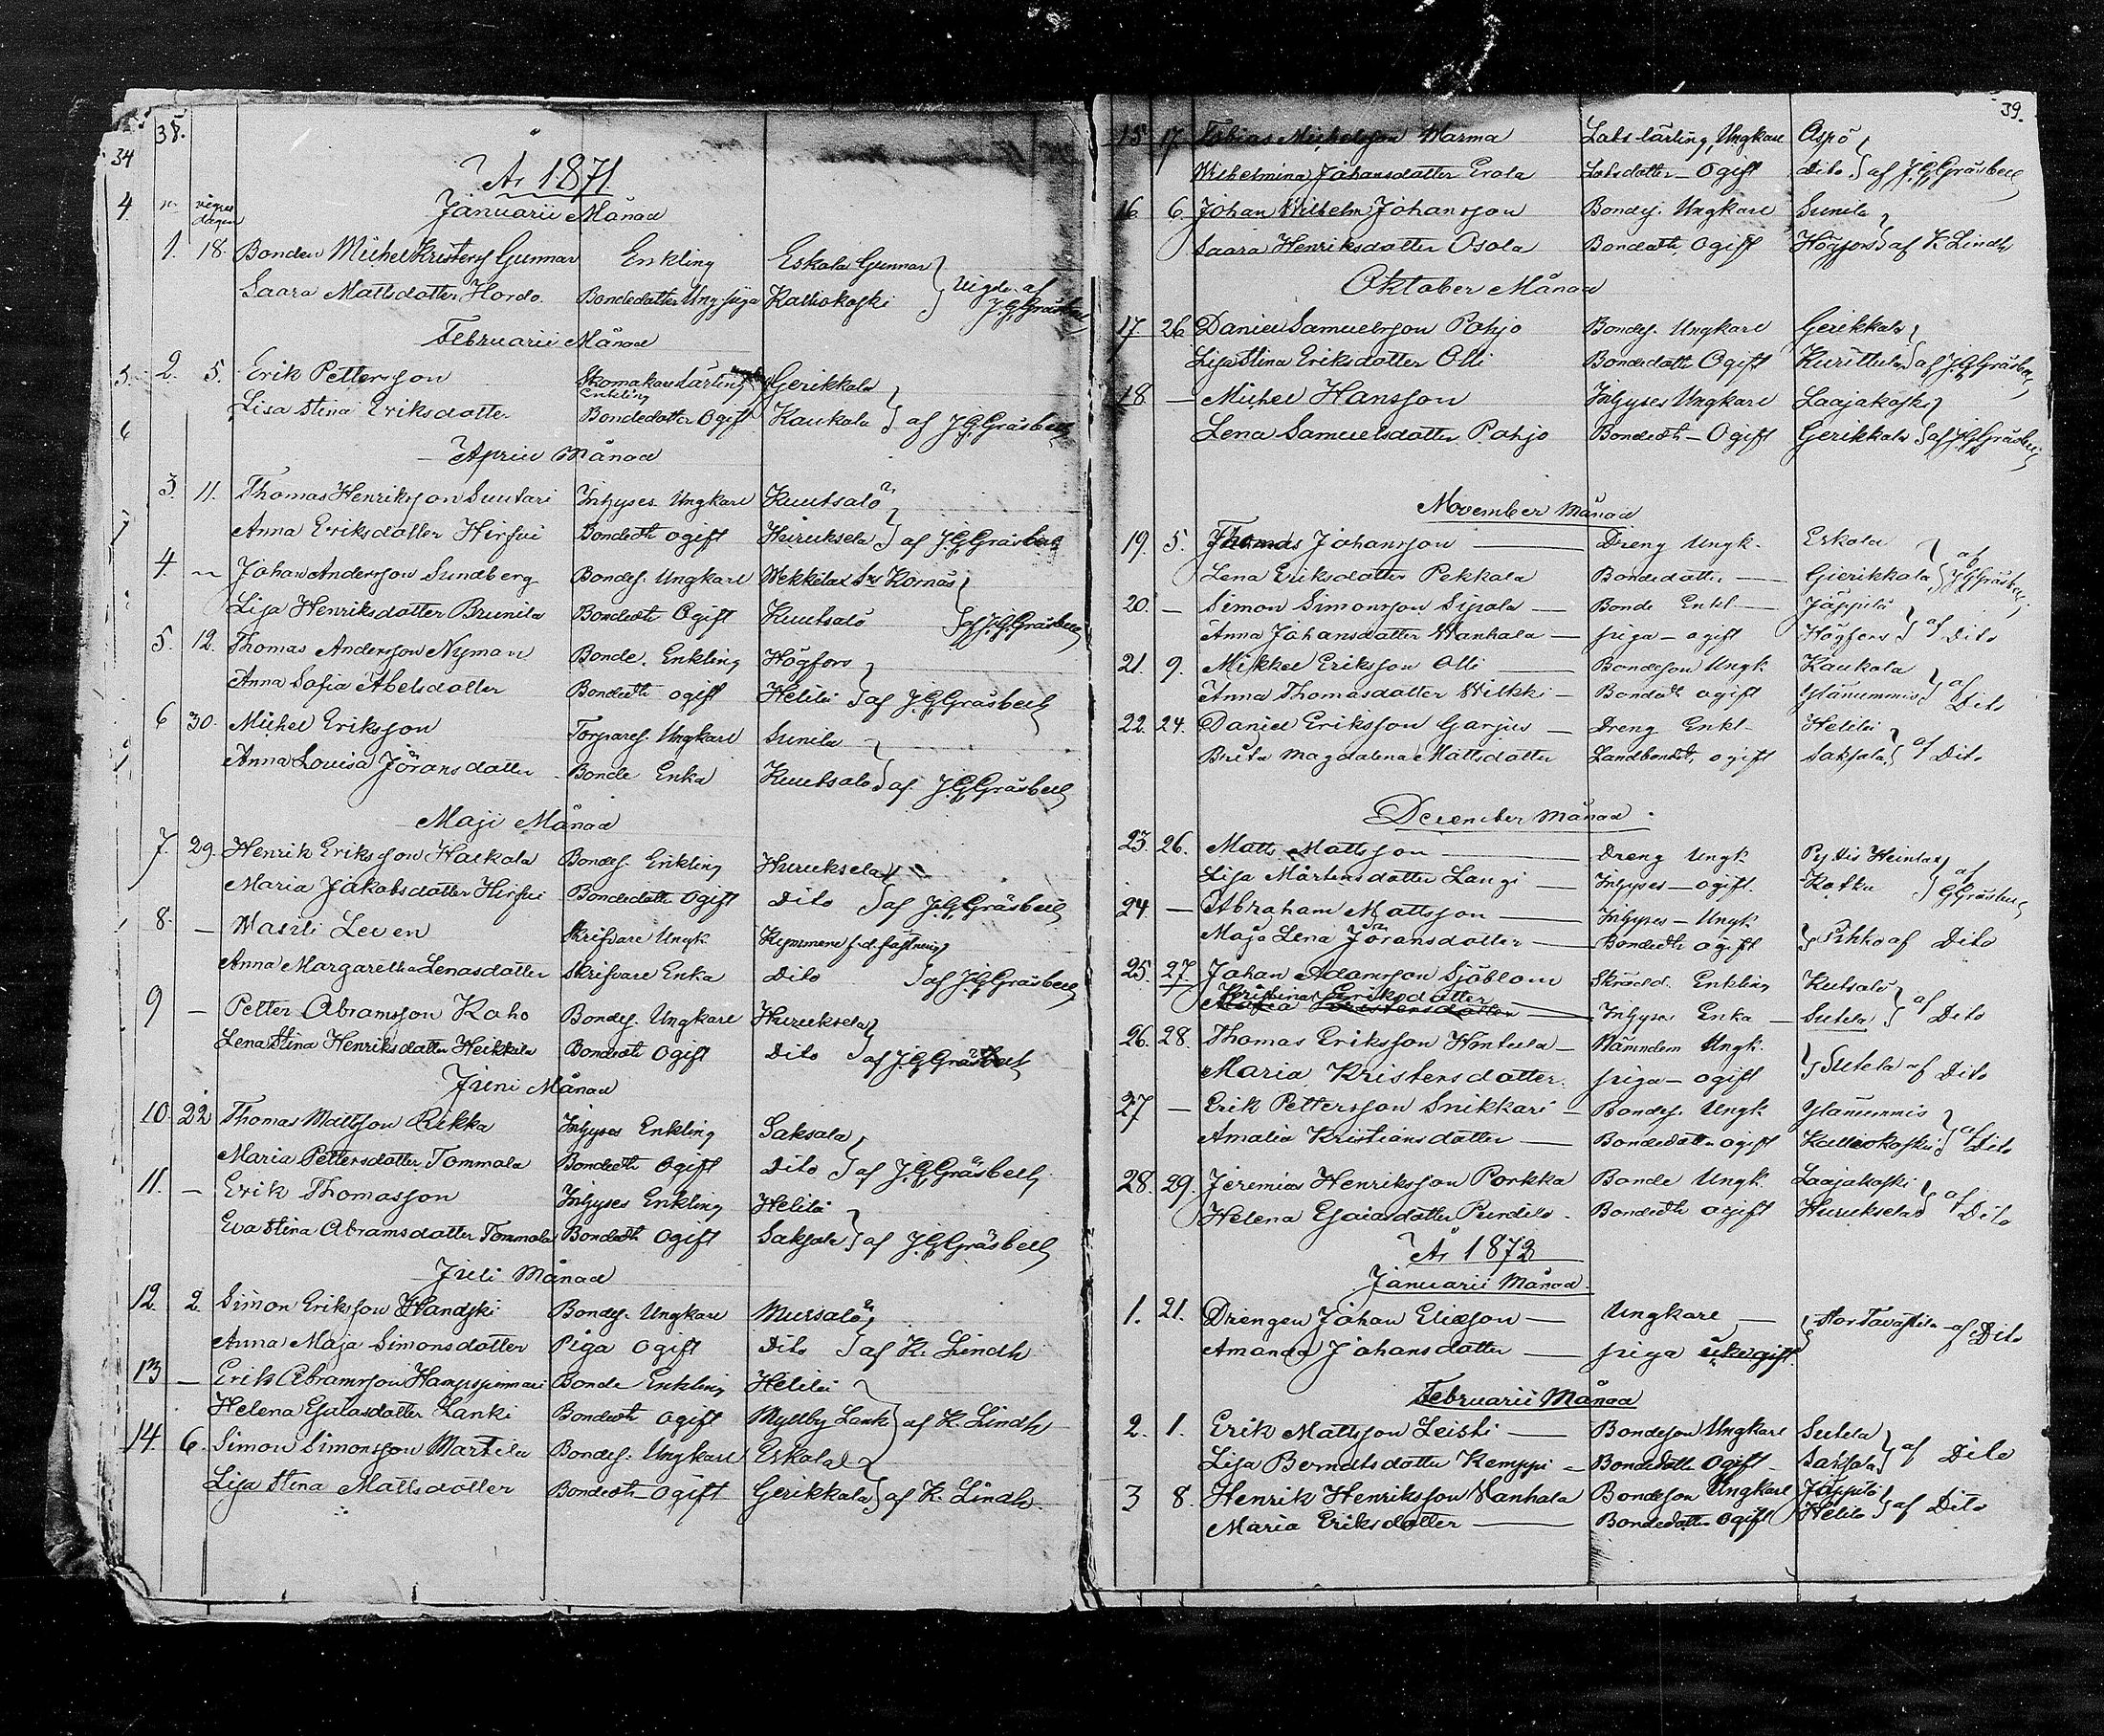 38.
34
År 1871
4. nr vigsel dagen Januarii Månad
1. 18. Bonden Michel Kristerss Gunnar Enkling Eskola Gunnar
Saara Mattsdotter Hordo Bondedotter Ung piga Kalliokoski } Vigde af J.G.Gråsbeck
Februarii Månad
5. 2. 5. Erik Pettersson Skomakare Lärling Enkling Gerikkala
Lisa Stina Eriksdotter Bondedotter Ogift Kaukola } af J.G.Gråsbeck
6
April Månad
3. 11. Thomas Henriksson Suutari Inhyses Ungkarl Kuutsalo
7 Anna Eriksdotter Hirsui Bondedtr ogift Huruksela } af J.G.Gråsbeck
4. ~ Johan Andersson Sundberg Bondes. Ungkarl Wekkelax Kornäs
Lisa Henriksdotter Brunila Bondedtr Ogift Kuutsalo } af J.G.Gråsbeck
5. 12. Thomas Andersson Nyman Bonde. Enkling Högfors
Anna Sofia Abelsdotter Bondedtr ogift Helilä } af J.G.Gråsbeck
6 30. Michel Eriksson Torpares. Ungkarl Sunila
Anna Lovisa Jöransdotter Bonde Enka Kuutsalo } af J.G.Gråsbeck
Maji Månad
7. 29. Henrik Eriksson Haikala Bondes. Enkling Huruksela
Maria Jakobsdotter Hirsui Bondedotter Ogift Dito } af J.G.Gråsbeck
8. – Wasili Leven Skrifvare Ungk. Kymmene f.d. fästning
Anna Margaretha Lenasdotter Skrifvare Enka Dito } af J.G.Gråsbeck
9 – Petter Abramsson Kaho Bondes. Ungkarl Huruksela
Lena Stina Henriksdotter Heikkala Bondedtr Ogift Dito } af J.G.Gråsbeck
Juni Månad
10. 22 Thomas Mattsson Rikka Inhyses Enkling Saksala
Maria Pettersdotter Tommola Bondedtr Ogift Dito } af J.G.Gråsbeck
11. – Erik Thomasson Inhyses Enkling Helilä
Eva Stina Abramsdotter Tommola Bondedtr Ogift Saksala } af J.G.Gråsbeck
Juli Månad
12. 2. Simon Eriksson Handski Bondes. Ungkarl Mussalo
Anna Maja Simonsdotter Piga Ogift Dito } af K. Lindh
13 – Erik Abramsson Hampspinnari Bonde Enkling Helilä
Helena Esaiasdotter Lanki Bondedtr Ogift Myllby Lanki } af K. Lindh
14. 6. Simon Simonsson Martila Bondes. Ungkarl Eskola
Lisa Stina Mattsdotter Bondedtr Ogift Gerikkala } af K. Lindh
39.
15 17. Tobias Michelsson Warma Lotslärling, Ungkarl Aspö
Wilhelmina Johansdotter Erola Lotsdotter – Ogift Dito } af J.G.Gråsbeck
16 6 Johan Wilhelm Johansson Bondes. Ungkarl Sunila
Saara Henriksdotter Osola Bondedtr Ogift Högfors } af K. Lindh
Oktober Månad
17. 26 Daniel Samuelsson Pohjo Bondes. Ungkarl Gerikkala
Lisa Stina Eriksdotter Olli Bondedottr Ogift Kurittula } af J.G.Gråsbeck
18. – Michel Hansson Inhyses Ungkarl Laajakoski
Lena Samuelsdotter Pohjo Bondedtr – Ogift Gerikkala } af J.G.Gråsbeck
November Månad
19. 5. Thomas Johansson – Dreng Ungk. Eskola
Lena Eriksdotter Pekkala Bondedotter – Gierikkala } af J.G.Gråsbeck
20. – Simon Simonsson Sipola – Bonde Enkl – Jäppilä
Anna Johansdotter Wanhala – piga – ogift Högfors } af Dito
21. 9. Mikkel Eriksson Olli – Bondeson Ungk. Kaukola
Anna Thomasdotter Wilkki – Bondedtr ogift Ylänummis } af Dito
22. 24. Daniel Eriksson Garjus – Dreng Enkl – Helilä
Brita Magdalena Mattsdotter Landbondedtr ogift Saksala } af Dito
December Månad
23. 26. Matts Mattsson – Dreng Ungk. Pyttis Heinlax
Lisa Mårtensdotter Langi – Inhyses – ogift. Kotka } af J.G.Gråsbeck
24. – Abraham Mattsson – Inhyses – Ungk.
Maja Lena Jöransdotter – Bondedtr ogift } Pihko af Dito
25. 27 Johan Adamsson Sjöblom Skrädd. Enkling Kutsalo
Kristina Eriksdotter – Inhyses Enka – Sutela } af Dito
26. 28. Thomas Eriksson Hinttula – Nämndem Ungk.
Maria Kristersdotter piga – ogift } Sutela af Dito
27 – Erik Pettersson Snikkari – Bondes. Ungk. Ylänummis
Amalia Kristiansdotter – Bondedotter ogift Kalliokoski } af Dito
28. 29. Jeremias Henriksson Porkka Bonde Ungk. Laajakoski
Helena Esaiasdotter Purdilo – Bondedtr ogift Huruksela } af Dito
År 1872
Januarii Månad
1. 21. Drengen Johan Eliasson – Ungkarl –
Amanda Johansdotter – piga } af Dito
Februarii Månad
2. 1. Erik Mattsson Leisti – Bondeson Ungkarl Sutela
Lisa Berndtsdotter Kemppi – Bondedottr Ogift – Saksala } af Dito
3 8. Henrik Henriksson Wanhala Bondeson Ungkarl Jäppilä
Maria Eriksdotter – Bondedotter Ogift Helilä } af Dito